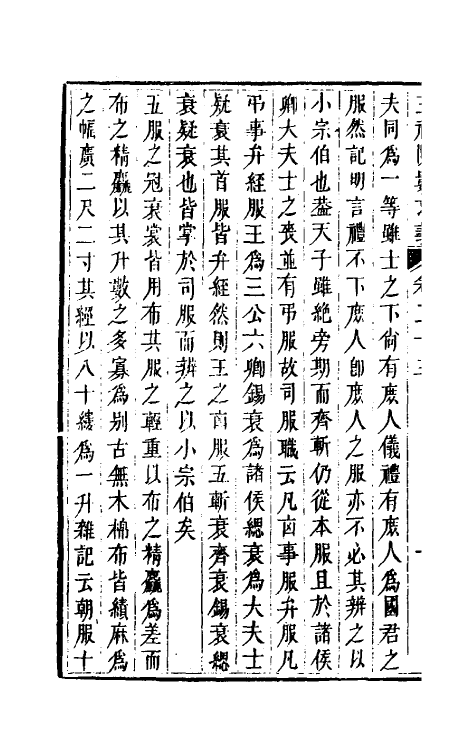 夫同為一等雖士之下尙有庶人儀禮有庶人為國君之
服然記明言禮不下庶人卽庶人之服亦不必其辨之以
小宗伯也葢天子雖絶旁期而齊斬仍從本服且於諸侯
卿大夫士之喪並有弔服故司服職云凡凶事服弁服凡
弔事弁絰服王為三公六卿錫衰為諸侯緦衰為大夫士
疑衰其首服皆弁絰然則王之凶服五斬衰齊衰錫衰緦
衰疑衰也皆掌於司服而辨之以小宗伯矣
五服之冠衰裳皆用布其服之輕重以布之精麤為差而
布之精麤以其升數之多寡為别古無木棉布皆績麻為
之幅廣二尺二寸其經以八十縷為一升雜記云朝服十